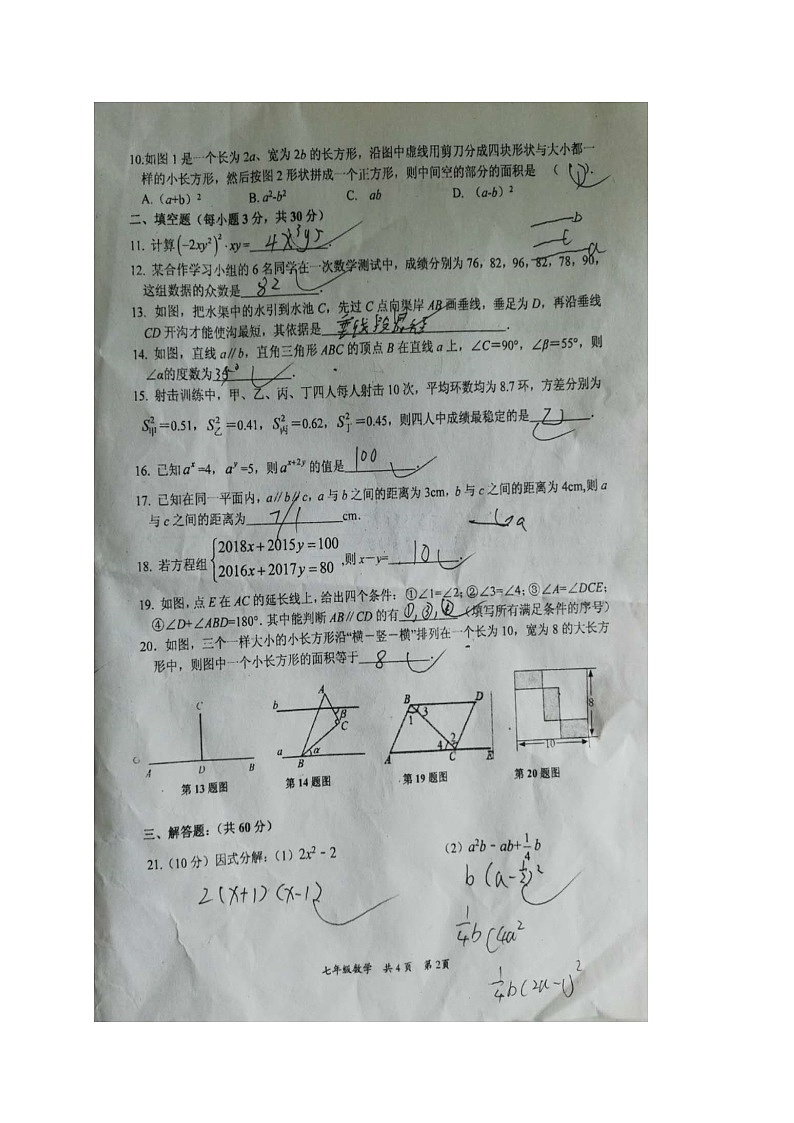 10.如图 1 是一个长为 2a、宽为 2b 的长方形，沿图中虚线用剪刀分成四块形状与大小都一
样的小长方形，然后按图 2 形状拼成一个正方形，则中间空的部分的面积是 （ ）.
A.（a+b）² B. a²-b² C. ab D.（a-b）²
二、填空题（每小题 3 分，共 30 分）
11. 计算(-2xy²)²·xy= 4x³y⁵ .
b
c
a
12. 某合作学习小组的 6 名同学在一次数学测试中，成绩分别为 76，82，96，82，78，90，
这组数据的众数是 82 .
13. 如图，把水渠中的水引到水池 C，先过 C 点向渠岸 AB 画垂线，垂足为 D，再沿垂线
CD 开沟才能使沟最短，其依据是 垂线段最短 .
14. 如图，直线 a∥b，直角三角形 ABC 的顶点 B 在直线 a 上，∠C=90°，∠β=55°，则
∠α的度数为 35° .
15. 射击训练中，甲、乙、丙、丁四人每人射击 10 次，平均环数均为 8.7 环，方差分别为
S²甲=0.51，S²乙=0.41，S²丙=0.62，S²丁=0.45，则四人中成绩最稳定的是 乙 .
16. 已知 aˣ=4，aʸ=5，则 aˣ⁺²ʸ 的值是 100 .
17. 已知在同一平面内，a∥b∥c，a 与 b 之间的距离为 3cm，b 与 c 之间的距离为 4cm,则 a
与 c 之间的距离为 7/1 cm.
a
18. 若方程组{2018x+2015y=100
2016x+2017y=80 ,则 x－y= 10 .
19. 如图，点 E 在 AC 的延长线上，给出四个条件：①∠1=∠2；②∠3=∠4；③∠A=∠DCE；
④∠D+∠ABD=180°. 其中能判断 AB∥CD 的有 ①,③,④ （填写所有满足条件的序号）
20. 如图，三个一样大小的小长方形沿“横－竖－横”排列在一个长为 10，宽为 8 的大长方
形中，则图中一个小长方形的面积等于 8 .
C
A D B
第 13 题图
b A β C
a B α
第 14 题图
B D
1 3 2 4
A C E
第 19 题图
8
10
第 20 题图
三、解答题：（共 60 分）
21.（10 分）因式分解：（1）2x²﹣2 （2）a²b﹣ab+1/4 b
2(x+1)(x-1)
b(a-1/2)²
1/4b(4a²
1/4b(2a-1)²
七年级数学 共 4 页 第 2 页